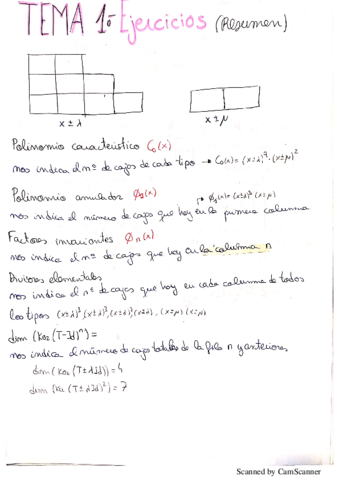 TEMA 1: Ejercicios (Resumen)
x ± λ
x ± μ
Polinomio característico C₀(x)
nos indica el nº de cajas de cada tipo → C₀(x) = (x±λ)⁹·(x±μ)²
Polinomio anulador ϕ₀(x)
ϕ₀(x) = (x±λ)³ (x±μ)
nos indica el número de cajas que hay en la primera columna
Factores invariantes ϕn(x)
nos indica el nº de cajas que hay en la columna n
Divisores elementales
nos indica el nº de cajas que hay en cada columna de todos
los tipos (x±λ)³, (x±λ)³, (x±λ)², (x±λ), (x±μ)(x±μ)
dim (Ker (T-Id)ⁿ) =
nos indica el número de cajas totales de la fila n y anteriores
dim (Ker (T±λId)) = 4
dim (Ker (T±λId)²) = 7
Scanned by CamScanner